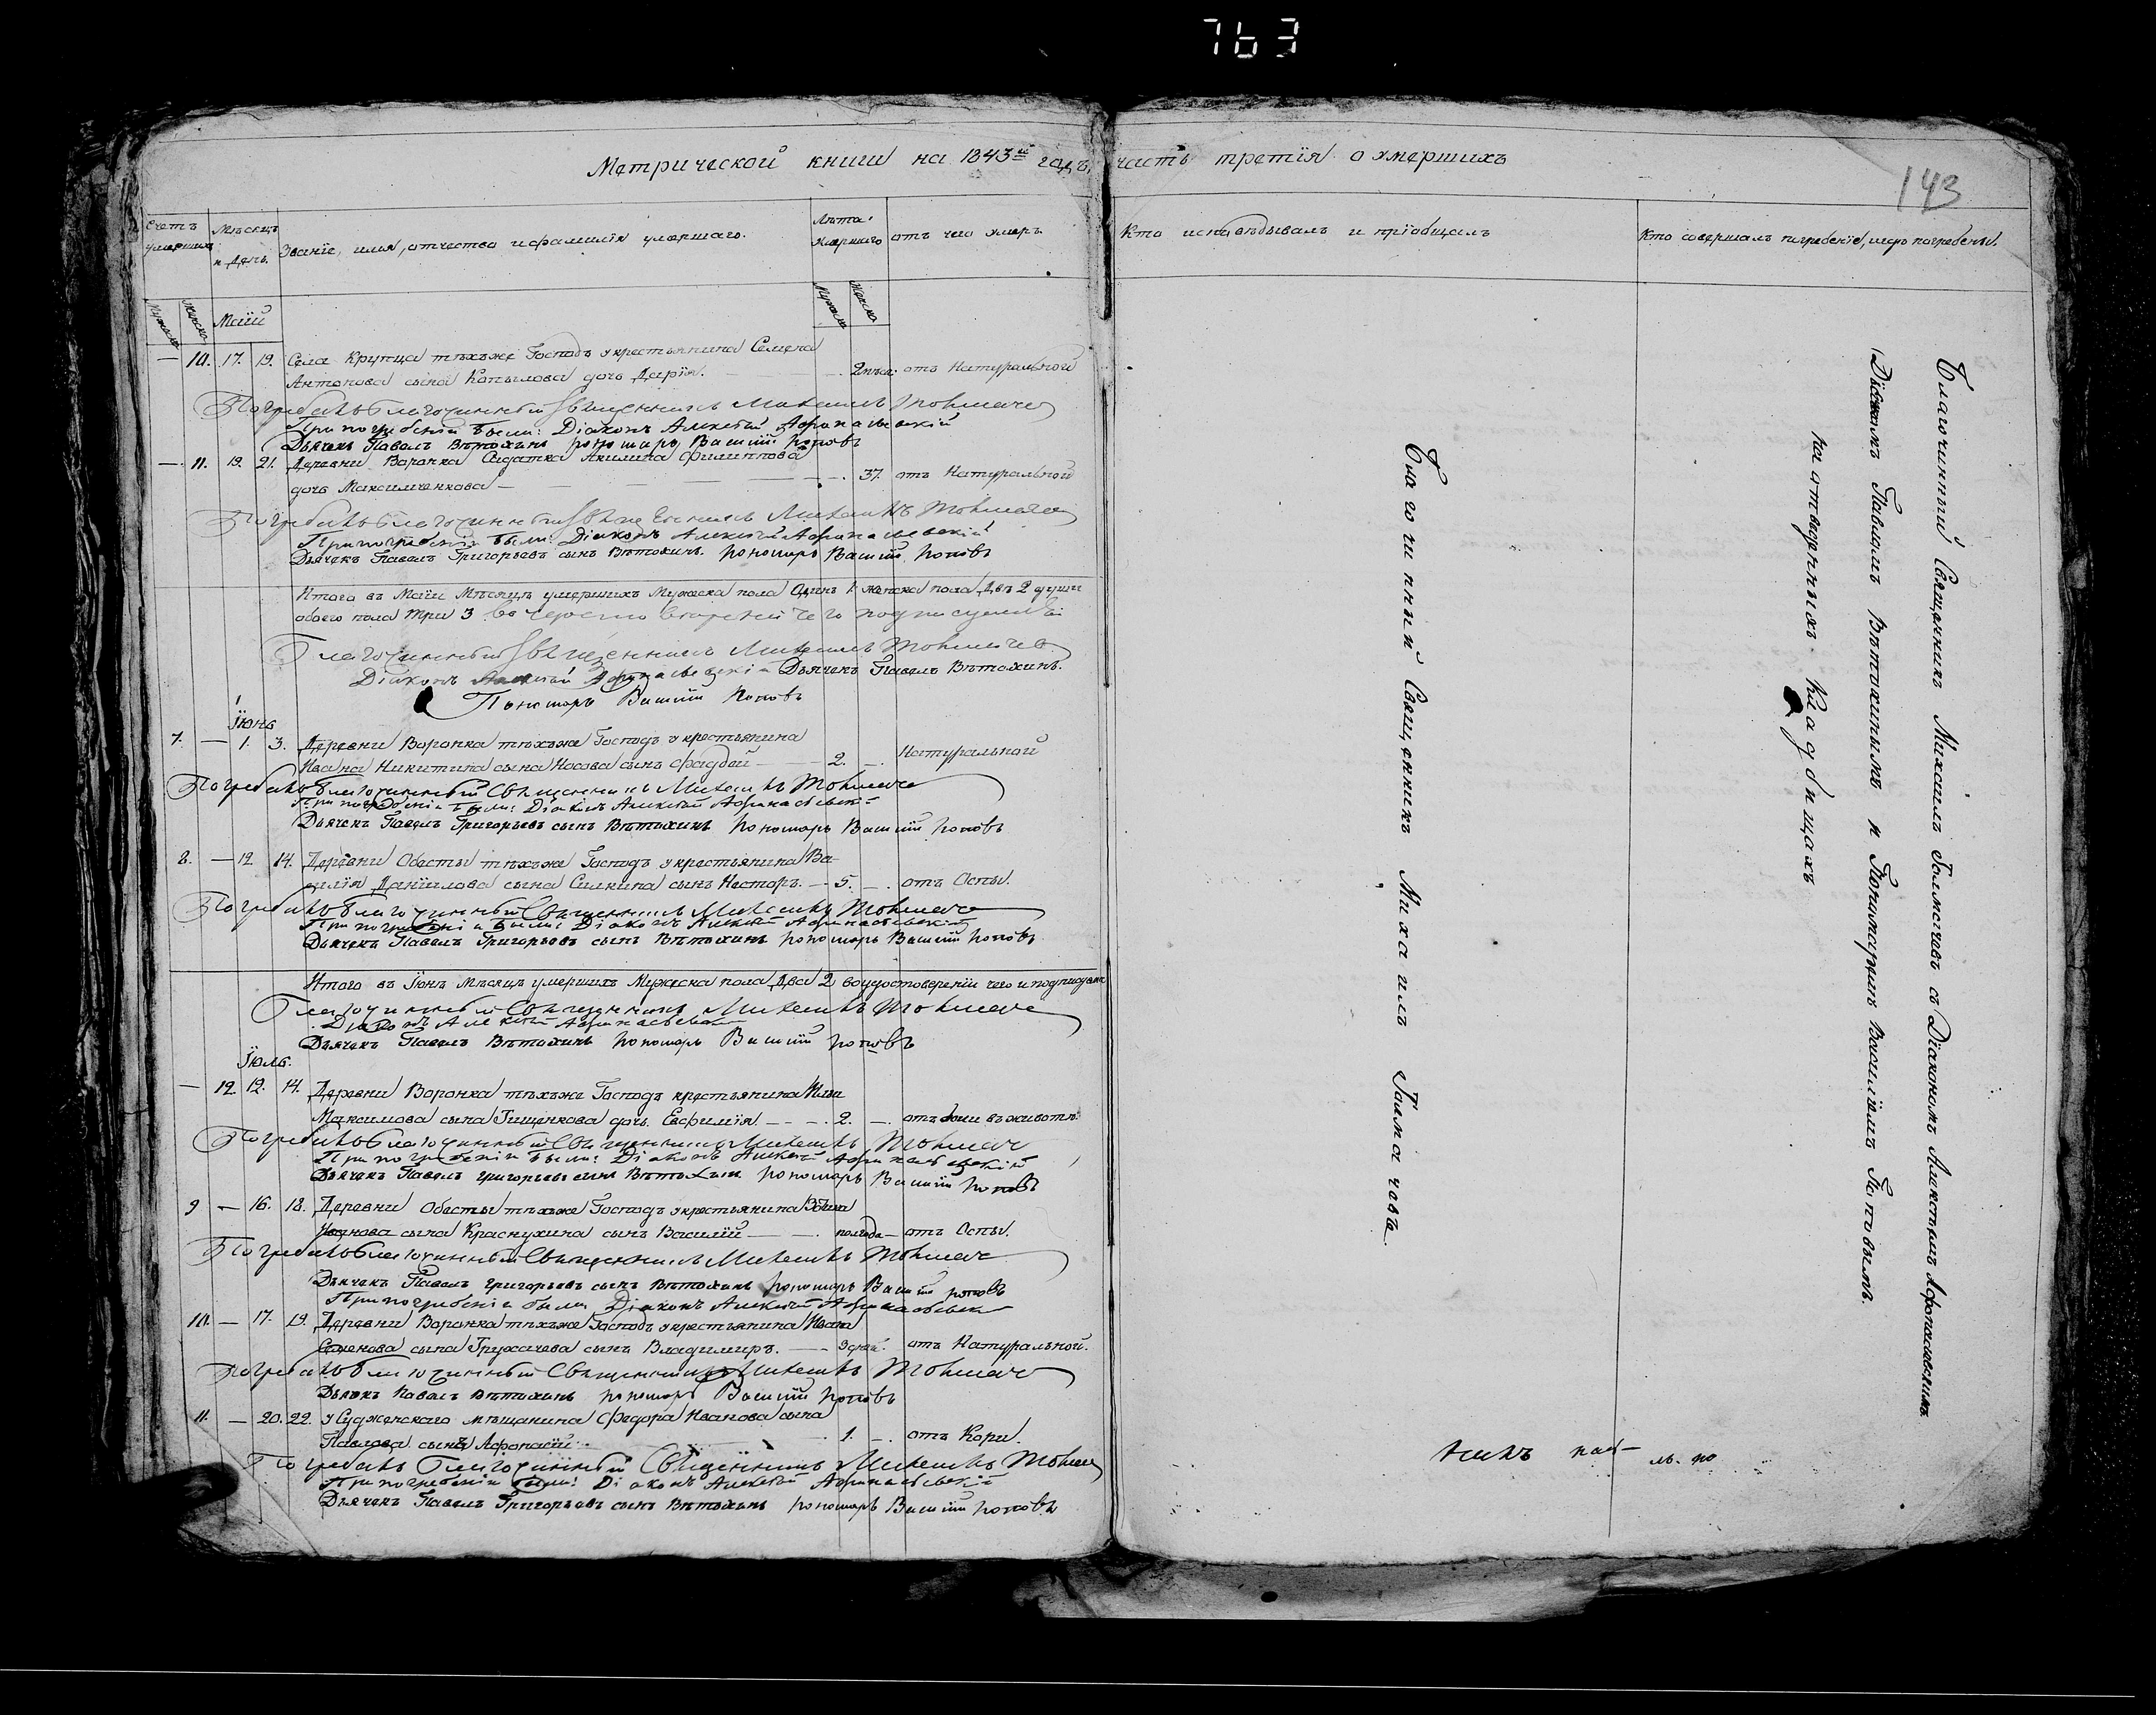 763
Метрической книги на 1843й годъ, часть третія о умершихъ
143
Счетъ умершихъ
Мѣсяцъ и день.
Званіе, имя, отчество и фамилія умершаго.
Лѣта умершаго
отъ чего умеръ.
Кто исповѣдывалъ и пріобщалъ
Кто совершалъ погребеніе, и гдѣ погребены.
Маїй
— 10. 17. 19. Села Крупца тѣхъже Господъ укрестьянина Семена
Антонова сына Копылова дочь Дарія. 2 отъ Натуральной
Погребалъ благочинный Священникъ Михаилъ
При погребеніи были: Діаконъ Алексѣй Афонасьевскій
Дьячекъ Павелъ Вѣтохинъ пономарь Василій Поповъ
— 11. 19. 21. Деревни Воронка Акилина Филиппова
дочь Максимченкова — 37. отъ Натуральной
Погребалъ благочинный Священникъ Михаилъ
При погребеніи были: Діаконъ Алексѣй Афонасьевскій
Дьячекъ Павелъ Григорьевъ сынъ Вѣтохинъ. пономарь Василій Поповъ
Итого въ Маїи Мѣсяцѣ умершихъ Мужеска пола Одинъ 1. женска пола Двѣ 2 души
обоего пола три 3
Благочинный Священникъ Михаилъ
Діаконъ Алексѣй Афонасьевскій Дьячекъ Павелъ Вѣтохинъ.
Пономарь Василій Поповъ
Іюнь
7. — 1. 3. Деревни Воронка тѣхъже Господъ укрестьянина
Ивана Никитина сына Носова сынъ Фаддей — 2. — Натуральной
Погребалъ благочинный Священникъ Михаилъ
При погребеніи были: Діаконъ Алексѣй Афонасьевскій
Дьячекъ Павелъ Григорьевъ сынъ Вѣтохинъ пономарь Василій Поповъ
8. — 12 14. Деревни Обесты тѣхъже Господъ укрестьянина Ва-
силія Даніилова сына Силкина сынъ Несторъ. — 5. — отъ Оспы.
Погребалъ благочинный Священникъ Михаилъ
При погребеніи были: Діаконъ Алексѣй Афонасьевскій
Дьячекъ Павелъ Григорьевъ сынъ Вѣтохинъ пономарь Василій Поповъ
Итого въ Іюнѣ Мѣсяцѣ умершихъ Мужеска пола Два 2 воудостовереніи чего и подписуемъ
Благочинный Священникъ Михаилъ
Діаконъ Алексѣй Афонасьевскій
Дьячекъ Павелъ Вѣтохинъ пономарь Василій Поповъ
Іюль.
— 12 12. 14. Деревни Воронка тѣхъже Господъ крестьянина Ильи
Максимова сына Гищенкова дочь Евфимія — 2. — отъ въ животѣ.
Погребалъ благочинный Священникъ Михаилъ
При погребеніи были: Діаконъ Алексѣй Афонасьевскій
Дьячекъ Павелъ Григорьевъ сынъ Вѣтохинъ пономарь Василій Поповъ
9 — 16. 18. Деревни Обесты тѣхъже Господъ укрестьянина
сына Краснухина сынъ Василій — полгода — отъ Оспы.
Погребалъ благочинный Священникъ Михаилъ
Дьячекъ Павелъ Григорьевъ сынъ Вѣтохинъ пономарь Василій Поповъ
При погребеніи были Діаконъ Алексѣй Афонасьевскій
10. — 17. 19. Деревни Воронка тѣхъже Господъ укрестьянина Ивана
Семенова сына Грухачева сынъ Владимиръ. — 3 дней. отъ Натуральной.
Погребалъ благочинный Священникъ Михаилъ
Дьячекъ Павелъ Вѣтохинъ пономарь Василій Поповъ
11. — 20. 22. у Судженскаго мѣщанина Федора Иванова сына
Павлова сынъ Афонасій 1. — отъ Кори.
Погребалъ Благочинный Священникъ Михаилъ
При погребеніи были: Діаконъ Алексѣй Афонасьевскій
Дьячекъ Павелъ Григорьевъ сынъ Вѣтохинъ пономарь Василій Поповъ
Благочинный Священникъ Михаилъ
Благочинный Священникъ Михаилъ съ Діакономъ Алексѣемъ Афонасьевскимъ
Дьячкомъ Павломъ Вѣтохинымъ и Пономаремъ Василіемъ Поповымъ.
на отведенныхъ Кладбищахъ